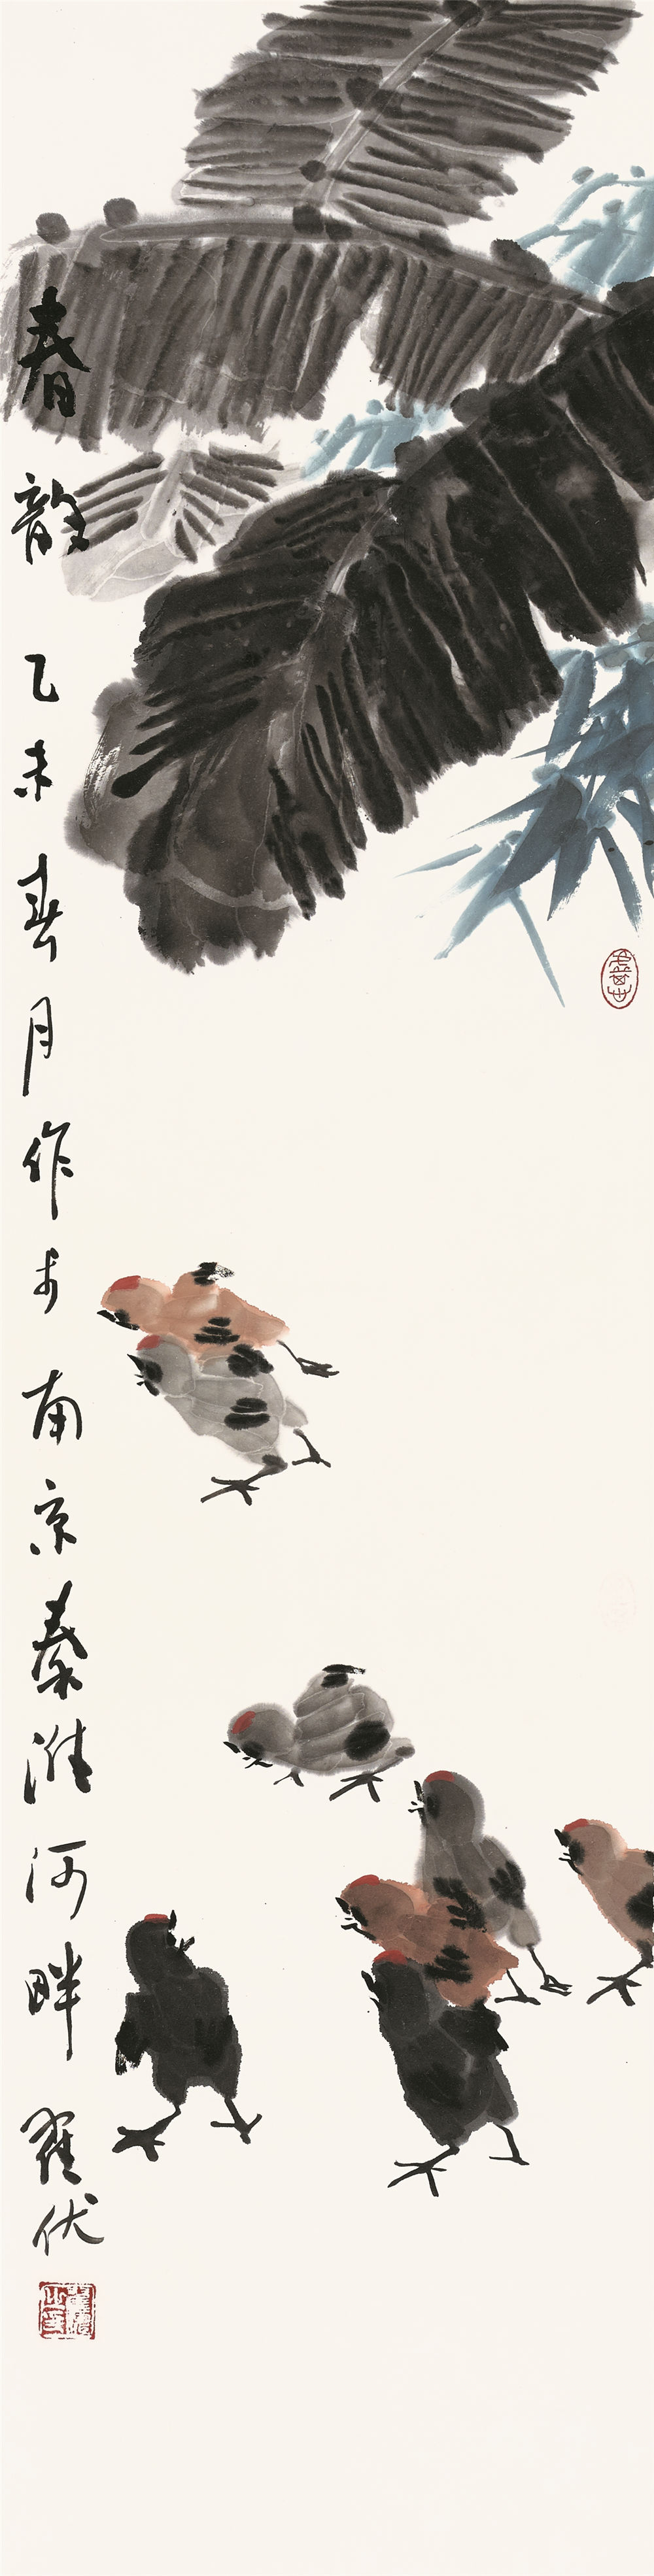 春韵 乙未春月作于南京秦淮河畔 翟伏